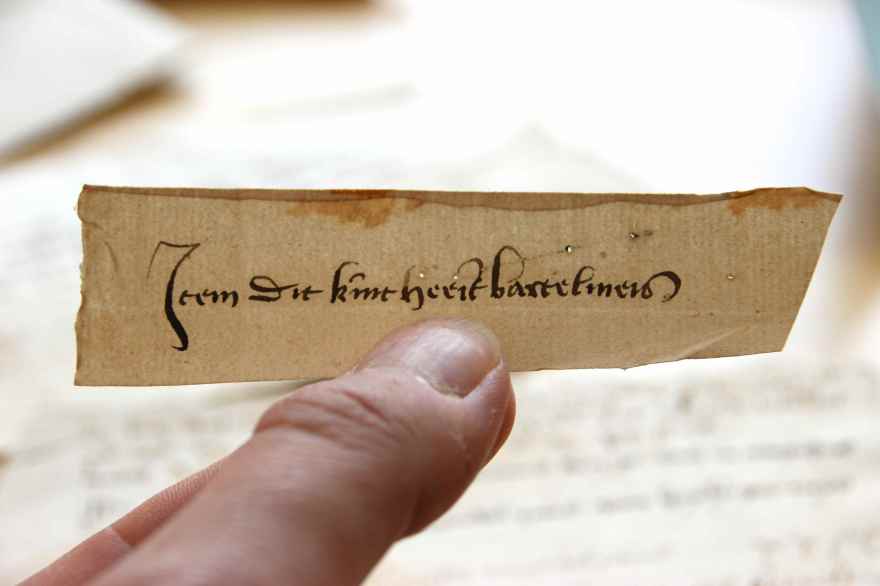 Item dit kint heeit bartelmeis